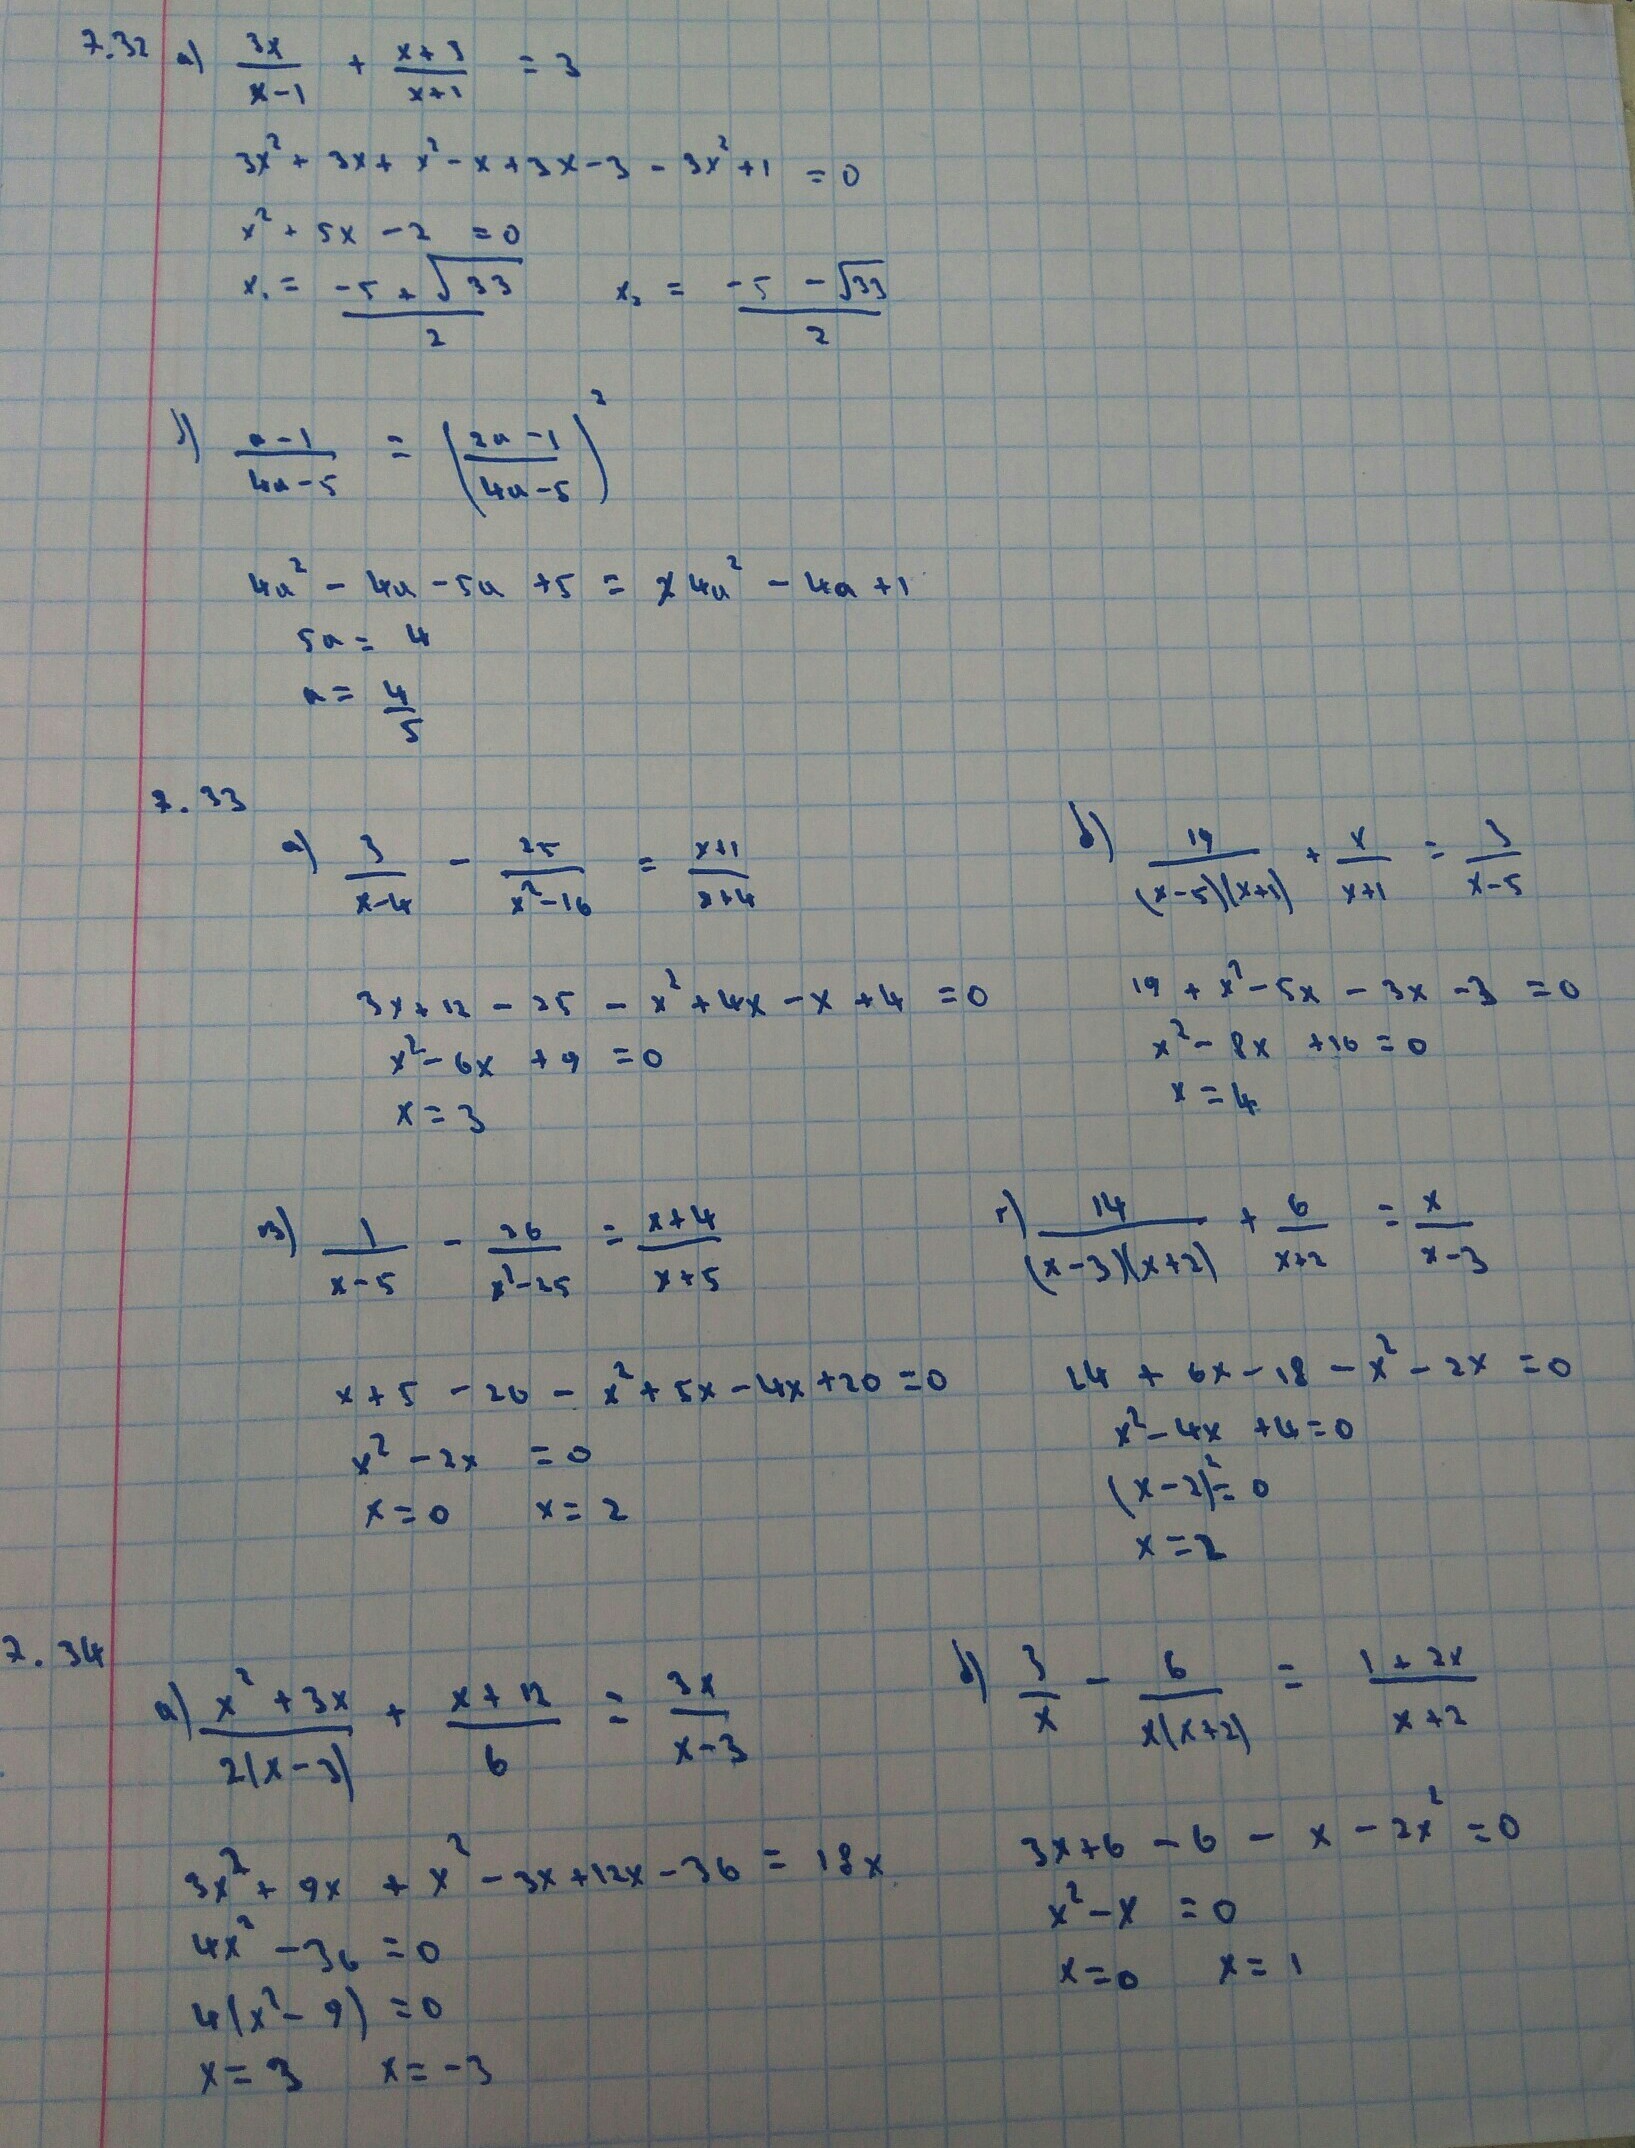 7.32 а) 3x/(x-1) + (x+3)/(x+1) = 3
3x² + 3x + x² - x + 3x - 3 - 3x² + 1 = 0
x² + 5x - 2 = 0
x₁ = (-5 + √33)/2 x₂ = (-5 - √33)/2
б) (a-1)/(4a-5) = ((2a-1)/(4a-5))²
4a² - 4a - 5a + 5 = 4a² - 4a + 1
5a = 4
a = 4/5
7.33
а) 3/(x-4) - 25/(x²-16) = (x+1)/(x+4)
3x + 12 - 25 - x² + 4x - x + 4 = 0
x² - 6x + 9 = 0
x = 3
б) 19/((x-5)(x+1)) + x/(x+1) = 3/(x-5)
19 + x² - 5x - 3x - 3 = 0
x² - 8x + 16 = 0
x = 4
в) 1/(x-5) - 26/(x²-25) = (x+4)/(x+5)
x + 5 - 26 - x² + 5x - 4x + 20 = 0
x² - 2x = 0
x = 0 x = 2
г) 14/((x-3)(x+2)) + 6/(x+2) = x/(x-3)
14 + 6x - 18 - x² - 2x = 0
x² - 4x + 4 = 0
(x-2)² = 0
x = 2
7.34
а) (x² + 3x)/(2(x-3)) + (x+12)/6 = 3x/(x-3)
3x² + 9x + x² - 3x + 12x - 36 = 18x
4x² - 36 = 0
4(x² - 9) = 0
x = 3 x = -3
б) 3/x - 6/(x(x+2)) = (1+2x)/(x+2)
3x + 6 - 6 - x - 2x² = 0
x² - x = 0
x = 0 x = 1